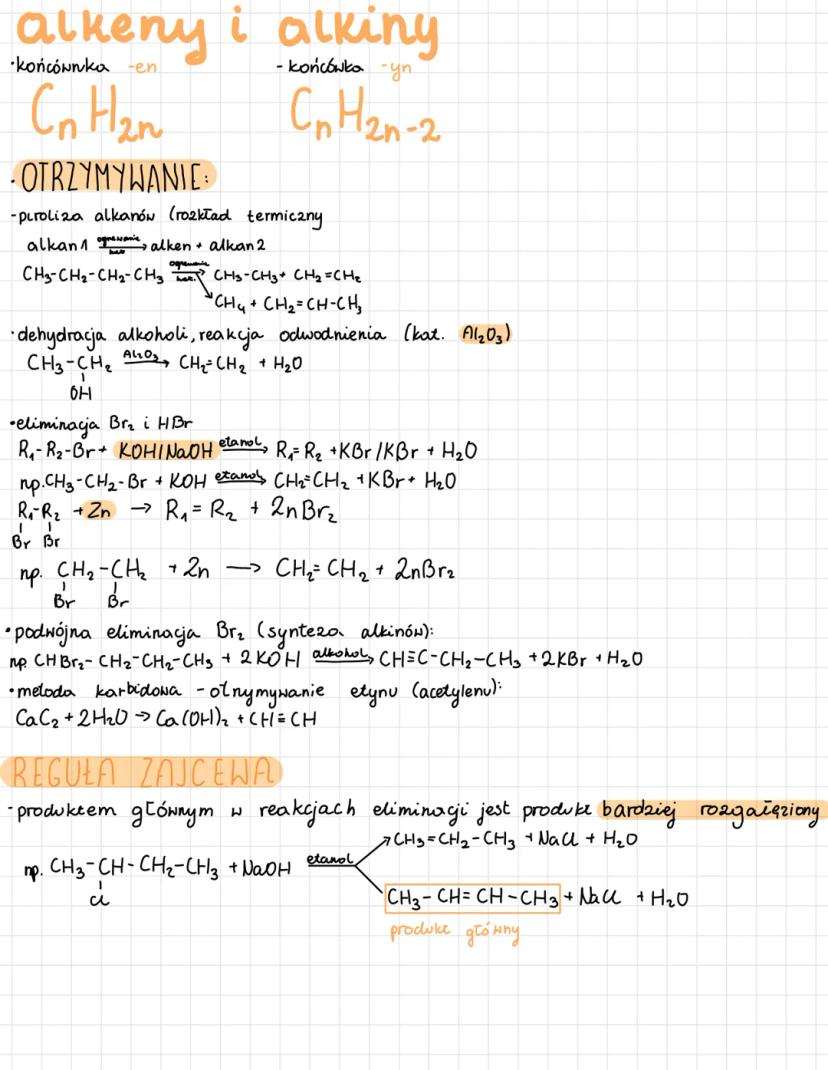 alkeny i alkiny
•końcówka -en - końcówka -yn
CnH2n CnH2n-2
•OTRZYMYWANIE:
-piroliza alkanów (rozkład termiczny
alkan 1 ogrzewanie kat. → alken + alkan 2
CH3-CH2-CH2-CH3 ogrzewanie kat. → CH3-CH3 + CH2=CH2
CH4 + CH2=CH-CH3
•dehydracja alkoholi, reakcja odwodnienia (kat. Al2O3)
CH3-CH2 Al2O3 → CH2=CH2 + H2O
OH
•eliminacja Br2 i HBr
R1-R2-Br + KOH/NaOH etanol → R1=R2 + KBr/KBr + H2O
np. CH3-CH2-Br + KOH etanol → CH2=CH2 + KBr + H2O
R1-R2 + Zn → R1=R2 + ZnBr2
Br Br
np. CH2-CH2 + Zn → CH2=CH2 + ZnBr2
Br Br
•podwójna eliminacja Br2 (synteza alkinów):
np CHBr2-CH2-CH2-CH3 + 2KOH alkohol → CH≡C-CH2-CH3 + 2KBr + H2O
•metoda karbidowa - otrzymywanie etynu (acetylenu):
CaC2 + 2H2O → Ca(OH)2 + CH≡CH
REGUŁA ZAJCEWA
-produktem głównym w reakcjach eliminacji jest produkt bardziej rozgałęziony
CH3=CH2-CH3 + NaCl + H2O
np. CH3-CH-CH2-CH3 + NaOH etanol
Cl
CH3-CH=CH-CH3 + NaCl + H2O
produkt główny